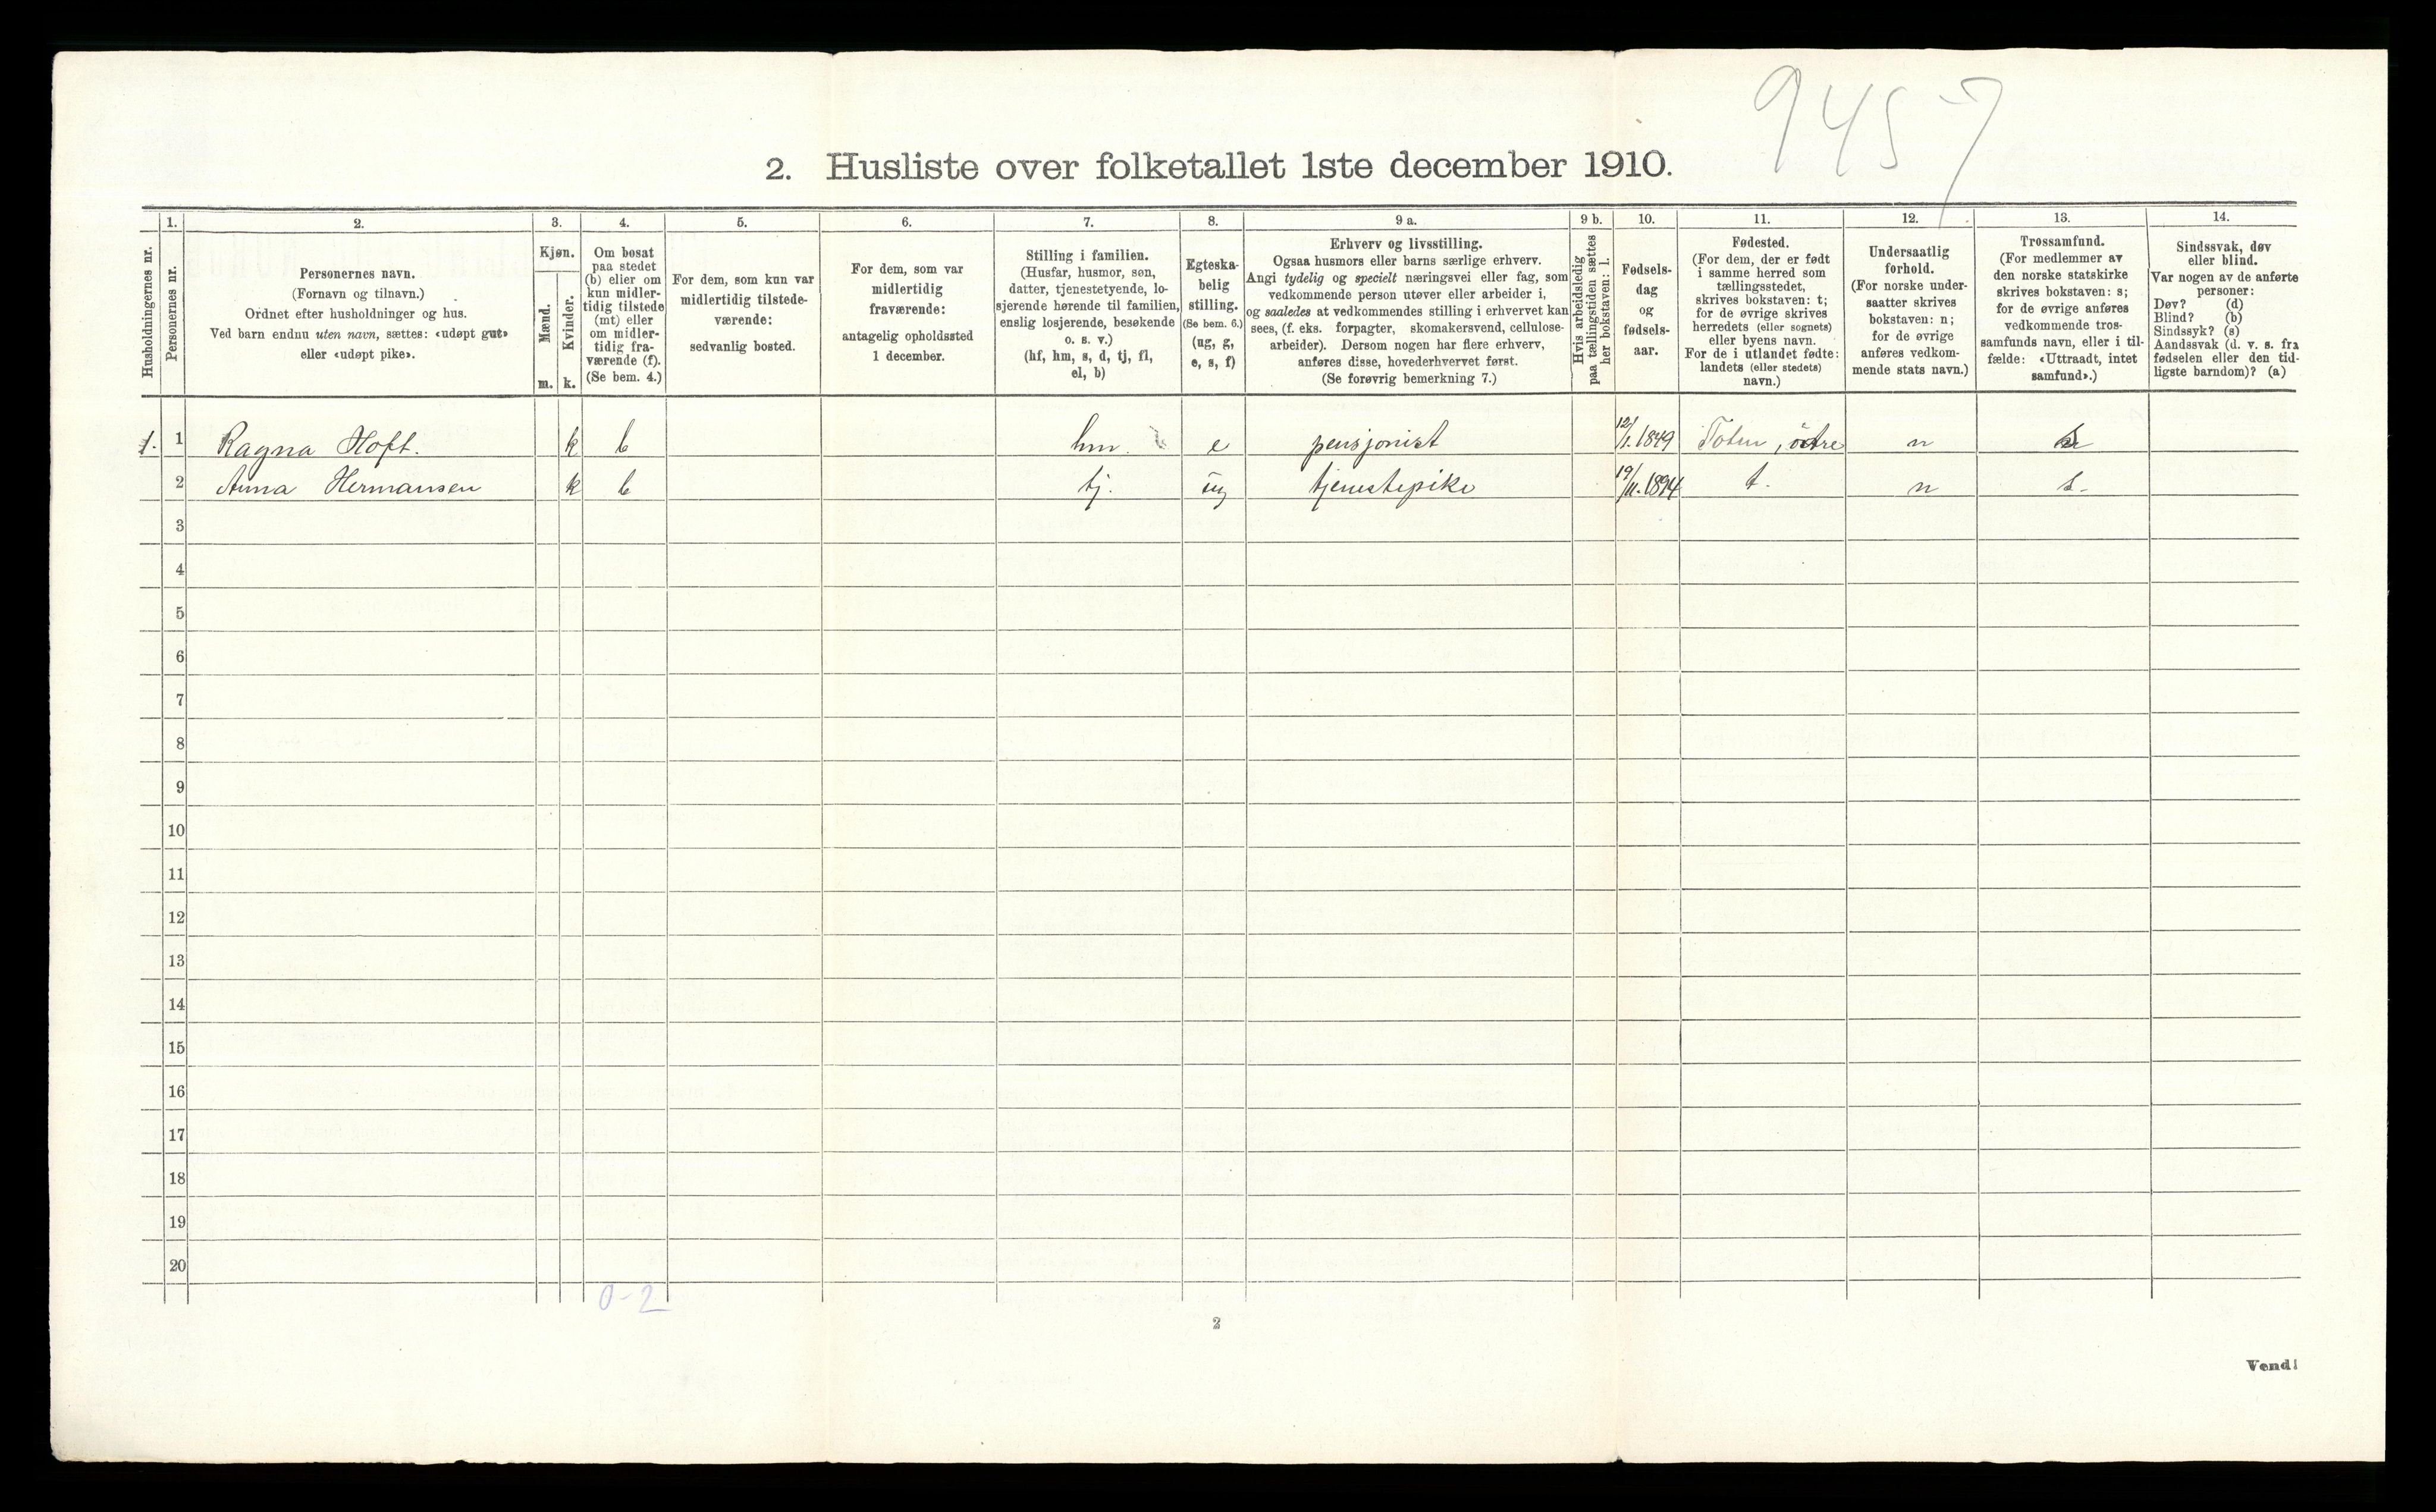 9457
2. Husliste over folketallet 1ste december 1910.
1. 2. 3. 4. 5. 6. 7. 8. 9 a. 9 b. 10. 11. 12. 13. 14.
Husholdningernes nr.
Personernes nr.
Personernes navn.
(Fornavn og tilnavn.)
Ordnet efter husholdninger og hus.
Ved barn endnu uten navn, sættes: «udøpt gut»
eller «udøpt pike».
Kjøn.
Mænd.
m.
Kvinder.
k.
Om bosat
paa stedet
(b) eller om
kun midler-
tidig tilstede
(mt) eller
om midler-
tidig fra-
værende (f).
(Se bem. 4.)
For dem, som kun var
midlertidig tilstede-
værende:
sedvanlig bosted.
For dem, som var
midlertidig
fraværende:
antagelig opholdssted
1 december.
Stilling i familien.
(Husfar, husmor, søn,
datter, tjenestetyende, lo-
sjerende hørende til familien,
enslig losjerende, besøkende
o. s. v.)
(hf, hm, s, d, tj, fl,
el, b)
Egteska-
belig
stilling.
(Se bem. 6.)
(ug, g,
e, s, f)
Erhverv og livsstilling.
Ogsaa husmors eller barns særlige erhverv.
Angi tydelig og specielt næringsvei eller fag, som
vedkommende person utøver eller arbeider i,
og saaledes at vedkommendes stilling i erhvervet kan
sees, (f. eks. forpagter, skomakersvend, cellulose-
arbeider). Dersom nogen har flere erhverv,
anføres disse, hovederhvervet først.
(Se forøvrig bemerkning 7.)
Hvis arbeidsledig
paa tællingstiden sættes
her bokstaven: l.
Fødsels-
dag
og
fødsels-
aar.
Fødested.
(For dem, der er født
i samme herred som
tællingsstedet,
skrives bokstaven: t;
for de øvrige skrives
herredets (eller sognets)
eller byens navn.
For de i utlandet fødte:
landets (eller stedets)
navn.)
Undersaatlig
forhold.
(For norske under-
saatter skrives
bokstaven: n;
for de øvrige
anføres vedkom-
mende stats navn.)
Trossamfund.
(For medlemmer av
den norske statskirke
skrives bokstaven: s;
for de øvrige anføres
vedkommende tros-
samfunds navn, eller i til-
fælde: «Uttraadt, intet
samfund».)
Sindssvak, døv
eller blind.
Var nogen av de anførte
personer:
Døv? (d)
Blind? (b)
Sindssyk? (s)
Aandssvak (d. v. s. fra
fødselen eller den tid-
ligste barndom)? (a)
1. 1 Ragna Hoft. k b hm. e pensjonist 12/1. 1849 Toten, östre n s
2 Anna Hermansen k b tj. ug tjenestepike 19/11. 1894 t. n s.
3
4
5
6
7
8
9
10
11
12
13
14
15
16
17
18
19
20
0-2
2
Vend!